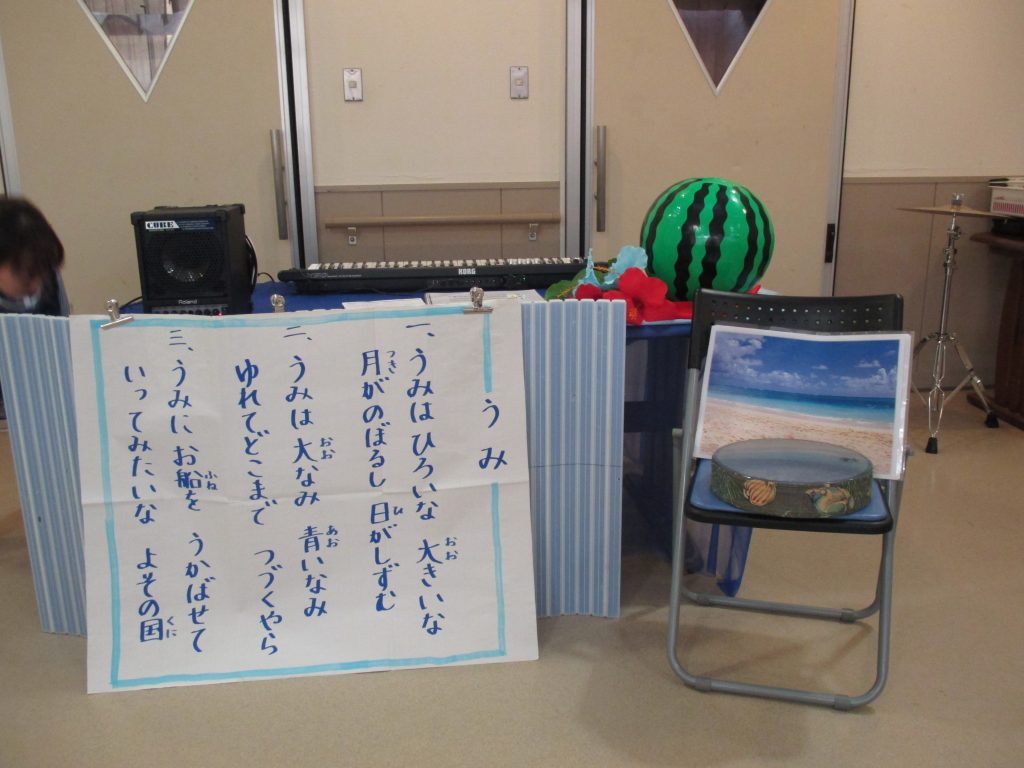 うみ
一、うみはひろいな 大きいな
月がのぼるし 日がしずむ
二、うみは大なみ 青いなみ
ゆれてどこまで つづくやら
三、うみに お船を うかばせて
いってみたいな よその国
CUBE
Roland
KORG